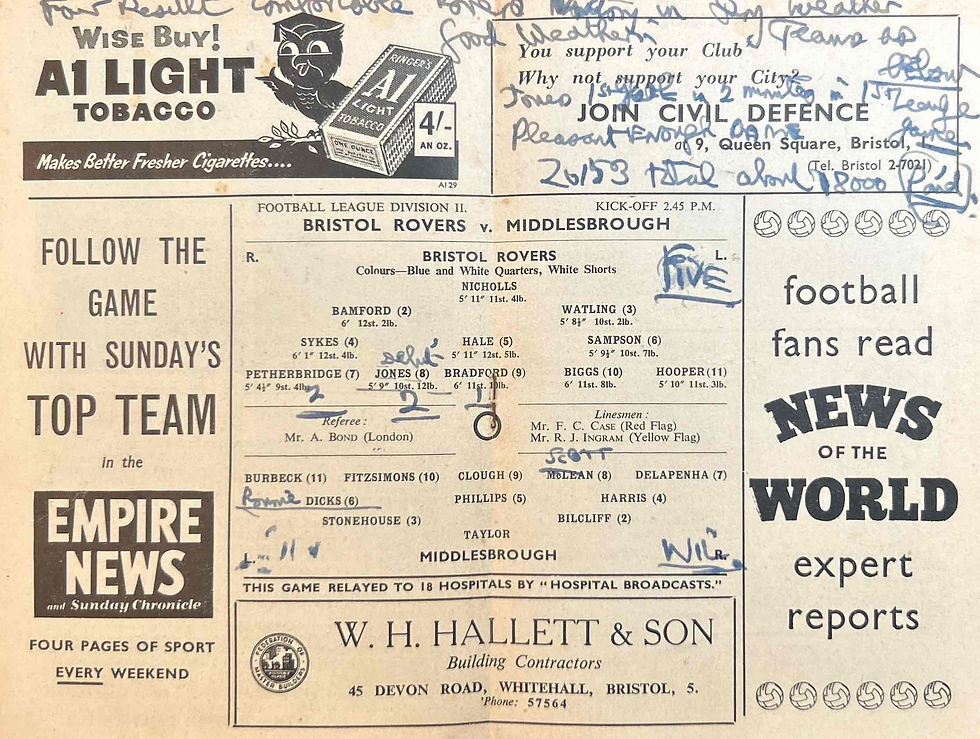 Fair Result Comfortable Rovers Victory in Dry Weather
Good Weather Teams as
below
Jones 1st goal in 2 minutes in 1st League
game
Pleasant Enough GAME
26153 total about 18000 Paid
WISE BUY!
A1 LIGHT
TOBACCO
RINGER'S
A1
LIGHT
TOBACCO
ONE OUNCE
4/-
AN OZ.
Makes Better Fresher Cigarettes....
A129
You support your Club
Why not support your City?
JOIN CIVIL DEFENCE
at 9, Queen Square, Bristol,
(Tel. Bristol 2-7021)
FOLLOW THE
GAME
WITH SUNDAY'S
TOP TEAM
in the
EMPIRE
NEWS
and Sunday Chronicle
FOUR PAGES OF SPORT
EVERY WEEKEND
FOOTBALL LEAGUE DIVISION II. KICK-OFF 2.45 P.M.
BRISTOL ROVERS v. MIDDLESBROUGH
R. BRISTOL ROVERS L.
FIVE
Colours—Blue and White Quarters, White Shorts
NICHOLLS
5' 11" 11st. 4lb.
BAMFORD (2) WATLING (3)
6' 12st. 2lb. 5' 8½" 10st. 2lb.
SYKES (4) HALE (5) SAMPSON (6)
6' 1" 12st. 4lb. 5' 11" 12st. 5lb. 5' 9½" 10st. 7lb.
debut
PETHERBRIDGE (7) JONES (8) BRADFORD (9) BIGGS (10) HOOPER (11)
5' 4½" 9st. 4lb. 5' 9" 10st. 12lb. 6' 11st. 10lb. 6' 11st. 8lb. 5' 10" 11st. 3lb.
2 2 1
Referee: Linesmen:
Mr. A. BOND (London) Mr. F. C. CASE (Red Flag)
Mr. R. J. INGRAM (Yellow Flag)
SCOTT
BURBECK (11) FITZSIMONS (10) CLOUGH (9) McLEAN (8) DELAPENHA (7)
Ronnie DICKS (6) PHILLIPS (5) HARRIS (4)
STONEHOUSE (3) BILCLIFF (2)
TAYLOR
L. MIDDLESBROUGH R.
NIL
THIS GAME RELAYED TO 18 HOSPITALS BY "HOSPITAL BROADCASTS."
FEDERATION OF
MASTER BUILDERS
W. H. HALLETT & SON
Building Contractors
45 DEVON ROAD, WHITEHALL, BRISTOL, 5.
'Phone: 57564
football
fans read
NEWS
OF THE
WORLD
expert
reports